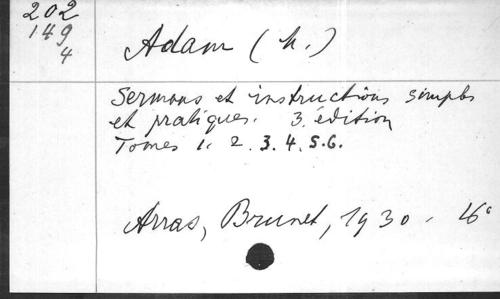 202
149
4
Adam (h.)
Sermons et instructions simples
et pratiques. 3. édition
Tomes 1. 2. 3. 4. 5. 6.
Arras, Brunet, 1930. 16°